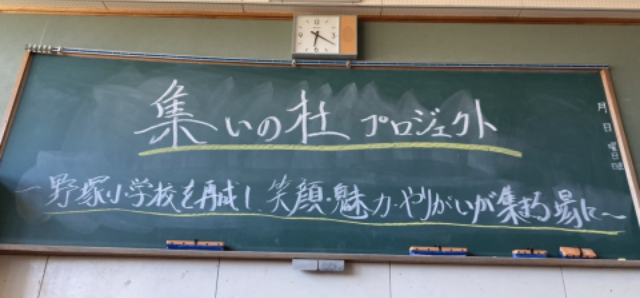 集いの杜 プロジェクト
〜野塚小学校を再成し 笑顔・魅力・やりがいが集まる場に〜
月 日 曜日